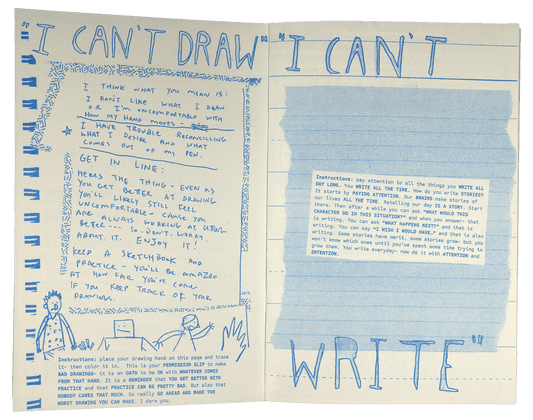 "I CAN'T DRAW"
I THINK WHAT YOU MEAN IS:
I DON'T LIKE WHAT I DRAW
OR I'M UNCOMFORTABLE WITH
HOW MY HAND MOVES -
I HAVE TROUBLE RECONCILLING
WHAT I DESIRE AND WHAT
COMES OUT OF MY PEN.
GET IN LINE:
HERES THE THING - EVEN AS
YOU GET BETTER AT DRAWING
YOU'LL LIKELY STILL FEEL
UNCOMFORTABLE - CAUSE YOU
ARE ALWAYS WORKING AT
BETTER --- SO - DON'T WORRY
ABOUT IT. ENJOY IT!
KEEP A SKETCHBOOK AND
PRACTICE - YOU'LL BE AMAZED
AT HOW FAR YOU'VE COME
IF YOU KEEP TRACK OF YOUR
DRAWINGS.
Instructions: place your drawing hand on this page and trace
it- then color it in. This is your PERMISSION SLIP to make
BAD DRAWINGS- it is an OATH to be OK with WHATEVER COMES
FROM THAT HAND. It is a REMINDER that YOU GET BETTER WITH
PRACTICE and that PRACTICE CAN BE PRETTY BAD. But also that
NOBODY CARES THAT MUCH. So really GO AHEAD AND MAKE THE
WORST DRAWING YOU CAN MAKE. I dare you.
"I CAN'T
Instructions: pay attention to all the things you WRITE ALL
DAY LONG. You WRITE ALL THE TIME. How do you write STORIES?
It starts by PAYING ATTENTION. Our BRAINS make stories of
our lives ALL THE TIME. Retelling our day IS A STORY. Start
there. Then after a while you can ask "WHAT WOULD THIS
CHARACTER DO IN THIS SITUATION?" and when you answer- that
is writing. You can ask "WHAT HAPPENS NEXT?" and that is
writing. You can say "I WISH I WOULD HAVE." and that is also
writing. Some stories have merit, some stories grow- but you
won't know which ones until you've spent some time trying to
grow them. You write everyday- now do it with ATTENTION and
INTENTION.
WRITE"